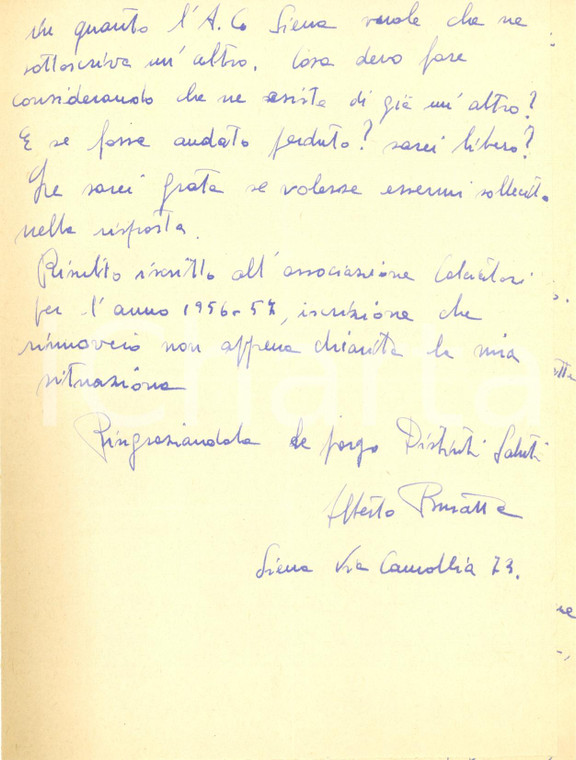 in quanto l'A.C. Siena vuole che ne
sottoscriva un'altro. Cosa devo fare
considerando che ne esiste di già un'altro?
E se fosse andato perduto? sarei libero?
Le sarei grato se volesse essermi sollecito
nella risposta.
Risulto iscritto all'associazione Calciatori
per l'anno 1956-57, iscrizione che
rinnoverò non appena chiarita la mia
situazione
Ringraziandola le porgo Distinti Saluti
Alberto
Siena Via Camollia 73.